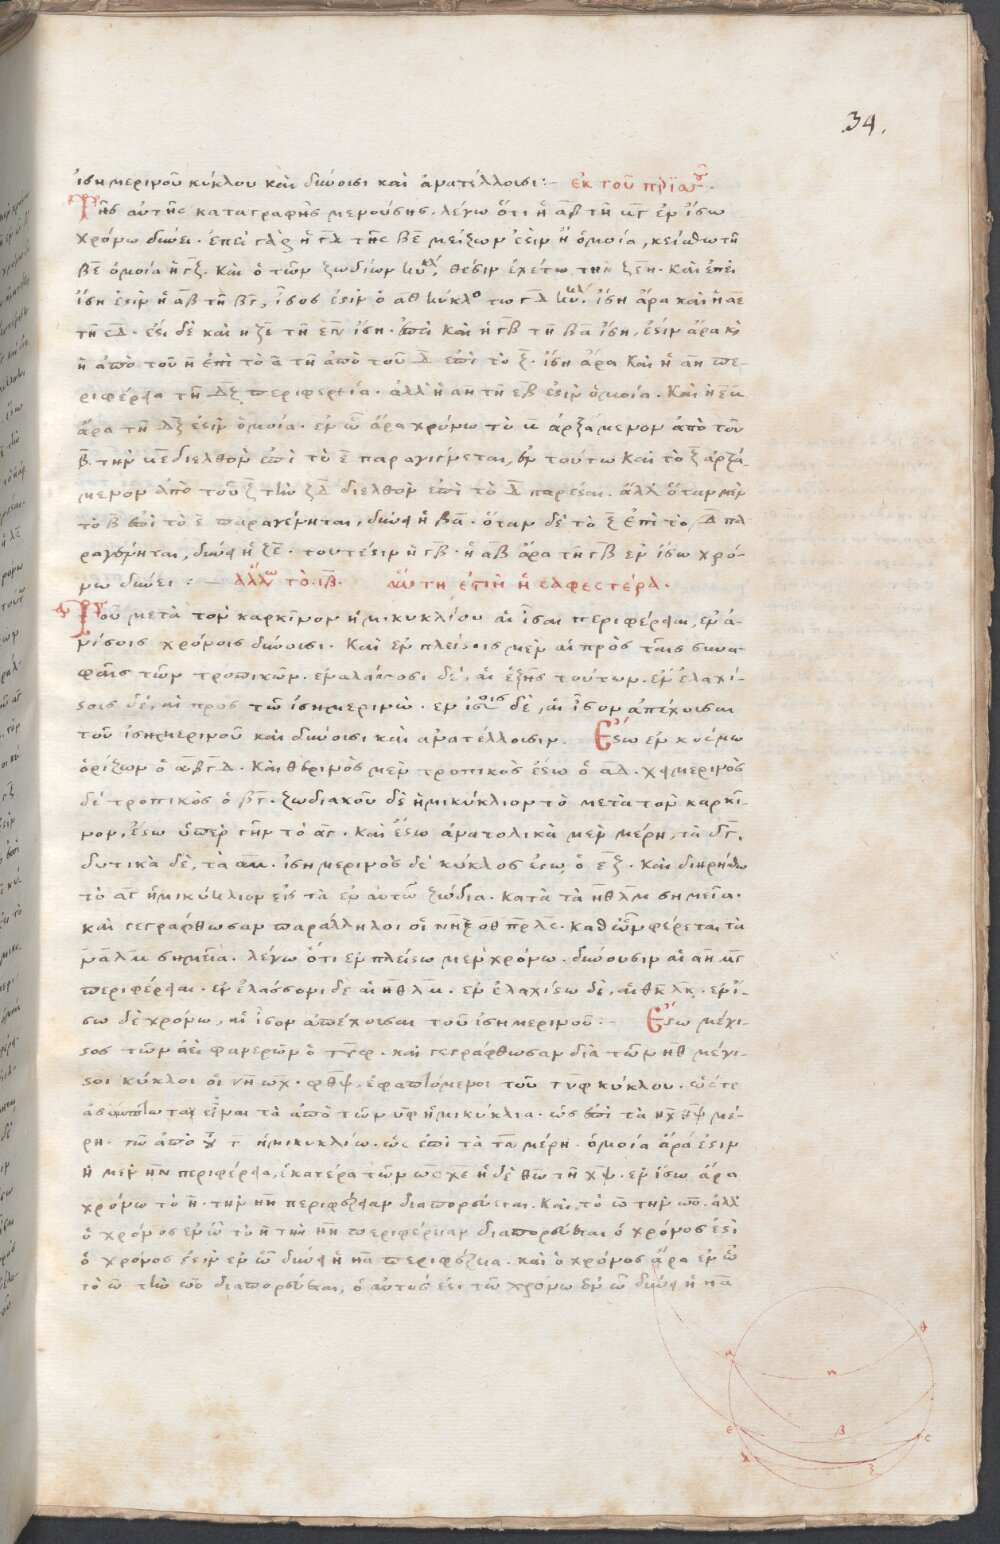 34.
ἰσημερινοῦ κύκλου καὶ δύνουσι καὶ ἀνατέλλουσι:- ἐκ τοῦ
Τῆς αὐτῆς καταγραφῆς μενούσης. λέγω ὅτι ἡ α̅β̅ τῇ ἐν ἴσω
χρόνω δύνει. ἐπεὶ γὰρ ἡ γ̅δ̅ τῆς β̅ε̅ μείζων ἐστὶν ἢ ὁμοία, κείσθω τῆ
β̅ε̅ ὁμοία ἡ γ̅ξ̅. καὶ ὁ τῶν ζωδίων κύκλ θέσιν ἐχέτω τὴν ξ̅ε̅η̅. καὶ ἐπεὶ
ἴση ἐστὶν ἡ α̅β̅ τῆ β̅γ̅, ἴσος ἐστὶν ὁ α̅θ̅ κύκλο τω γ̅δ̅ κύκλ. ἴση ἄρα καὶ ἡ α̅ε̅
τῆ ε̅δ̅. ἐστὶ δὲ καὶ η ξ̅ε̅ τῆ ε̅η̅ ἴση. καὶ ἡ γ̅β̅ τῆ β̅α̅ ἴση, ἐστὶν ἄρα κὶ
ἡ ἀπὸ τοῦ η̅ ἐπὶ τὸ α̅ τῆ ἀπὸ τοῦ δ̅ ἐπὶ τὸ ξ̅. ἴση ἄρα καὶ ἡ α̅η̅ πε-
ριφέρεια τῆ δ̅ξ̅ περιφερεία. ἀλλ' ἡ α̅η̅ τῆ ε̅β̅ ἐστὶν ὁμοία. καὶ ἡ
ἄρα τῆ δ̅ξ̅ ἐστὶν ὁμοία. ἐν ὧ ἄρα χρόνω τὸ ἀρξάμενον ἀπὸ τοῦ
β̅ τὴν διελθὸν ἐπὶ τὸ ε̅ παραγίνεται, ἐν τούτω καὶ τὸ ξ̅ ἀρξά-
μενον ἀπὸ τοῦ ξ̅ τὴν ξ̅δ̅ διελθὸν ἐπὶ τὸ δ̅ παρέσται. ἀλλ' ὅταν μὲν
τὸ β̅ ἐπὶ τὸ ε̅ παραγένηται, δύνει ἡ β̅α̅. ὅταν δὲ τὸ ξ̅ ἐπὶ τὸ δ̅ πα
ραγένηται, δύνει ἡ ξ̅ε̅. τουτέστιν ἡ γ̅β̅. ἡ α̅β̅ ἄρα τῆ γ̅β̅ ἐν ἴσω χρό-
νω δύνει:- ἄλλως τὸ ιβ. αὕτη ἐστὶν ἡ σαφεστέρα.
Τοῦ μετὰ τὸν καρκίνον ἡμικυκλίου αἱ ἴσαι περιφέρειαι, ἐν ἀ-
νίσοις χρόνοις δύνουσι. καὶ ἐν πλείστοις μὲν αἱ πρὸς ταῖς συνα-
φαῖς τῶν τροπικῶν. ἐν ἐλάττοσι δὲ, αἱ ἑξῆς τούτων. ἐν ἐλαχί-
στοις δὲ, αἱ πρὸς τῶ ἰσημερινῶ. ἐν ἴσοις δὲ, αἱ ἴσον ἀπέχουσαι
τοῦ ἰσημερινοῦ καὶ δύνουσι καὶ ἀνατέλλουσιν. Ἔστω ἐν κόσμω
ὁρίζων ὁ α̅β̅γ̅δ̅. καὶ θερινὸς μὲν τροπικὸς ἔστω ὁ α̅δ̅. χειμερινὸς
δὲ τροπικὸς ὁ β̅γ̅. ζωδιακοῦ δὲ ἡμικύκλιον τὸ μετὰ τὸν καρκί-
νον, ἔστω ὑπὲρ γῆν τὸ α̅γ̅. καὶ ἔστω ἀνατολικὰ μὲν μέρη, τὰ δ̅γ̅.
δυτικὰ δὲ, τὰ ἰσημερινὸς δὲ κύκλος ἔστω ὁ ε̅ζ̅. καὶ διηρήσθω
τὸ α̅γ̅ ἡμικύκλιον εἰς τὰ ἐν αὐτῶ ζώδια. κατὰ τὰ η̅θ̅λ̅μ̅ σημεῖα.
καὶ γεγράφθωσαν παράλληλοι οἱ καθ' ὧν φέρεται τὰ
σημεῖα. λέγω ὅτι ἐν πλείστω μὲν χρόνω. δύνουσιν αἱ α̅η̅ μ̅γ̅
περιφέρειαι. ἐν ἐλάσσονι δὲ αἱ η̅θ̅ λ̅μ̅. ἐν ἐλαχίστω δὲ, αἱ θ̅κ̅ λ̅κ̅. ἐν ἴ-
σω δὲ χρόνω, αἱ ἴσον ἀπέχουσαι τοῦ ἰσημερινοῦ:- Ἔστω μέγι-
στος τῶν ἀεὶ φανερῶν ὁ τ̅υ̅φ̅. καὶ γεγράφθωσαν διὰ τῶν η̅θ̅ μέγι-
στοι κύκλοι οἱ ἐφαπτόμενοι τοῦ τ̅υ̅φ̅ κύκλου. ὥστε
ἀσύμπτωτα εἶναι τὰ ἀπὸ τῶν υ̅φ̅ ἡμικύκλια. ὡς ἐπὶ τὰ μέ-
ρη. τῶ ἀπὸ ἡμικυκλίω. ὡς ἐπὶ τὰ μέρη. ὁμοία ἄρα ἐστὶν
ἡ μὲν η̅ν̅ περιφέρεια, ἑκατέρα τῶν ἡ δὲ θ̅ω̅ τῆ χ̅ψ̅. ἐν ἴσω ἄρα
χρόνω τὸ η̅. τὴν η̅ν̅ περιφέρειαν διαπορεύεται. καὶ τὸ ω̅ τὴν ἀλλ'
ὁ χρόνος ἐν ὧ τὸ η̅ τὴν η̅ν̅ περιφέρειαν διαπορεύεται ὁ χρόνος ἐστὶ
ὁ χρόνος ἐστὶν ἐν ὧ δύνει ἡ η̅α̅ περιφέρεια. καὶ ὁ χρόνος ἄρα ἐν ὧ
τὸ ω̅ τὴν διαπορεύεται, ὁ αὐτός ἐστι τῶ χρόνω ἐν ὧ δύνει ἡ η̅α̅